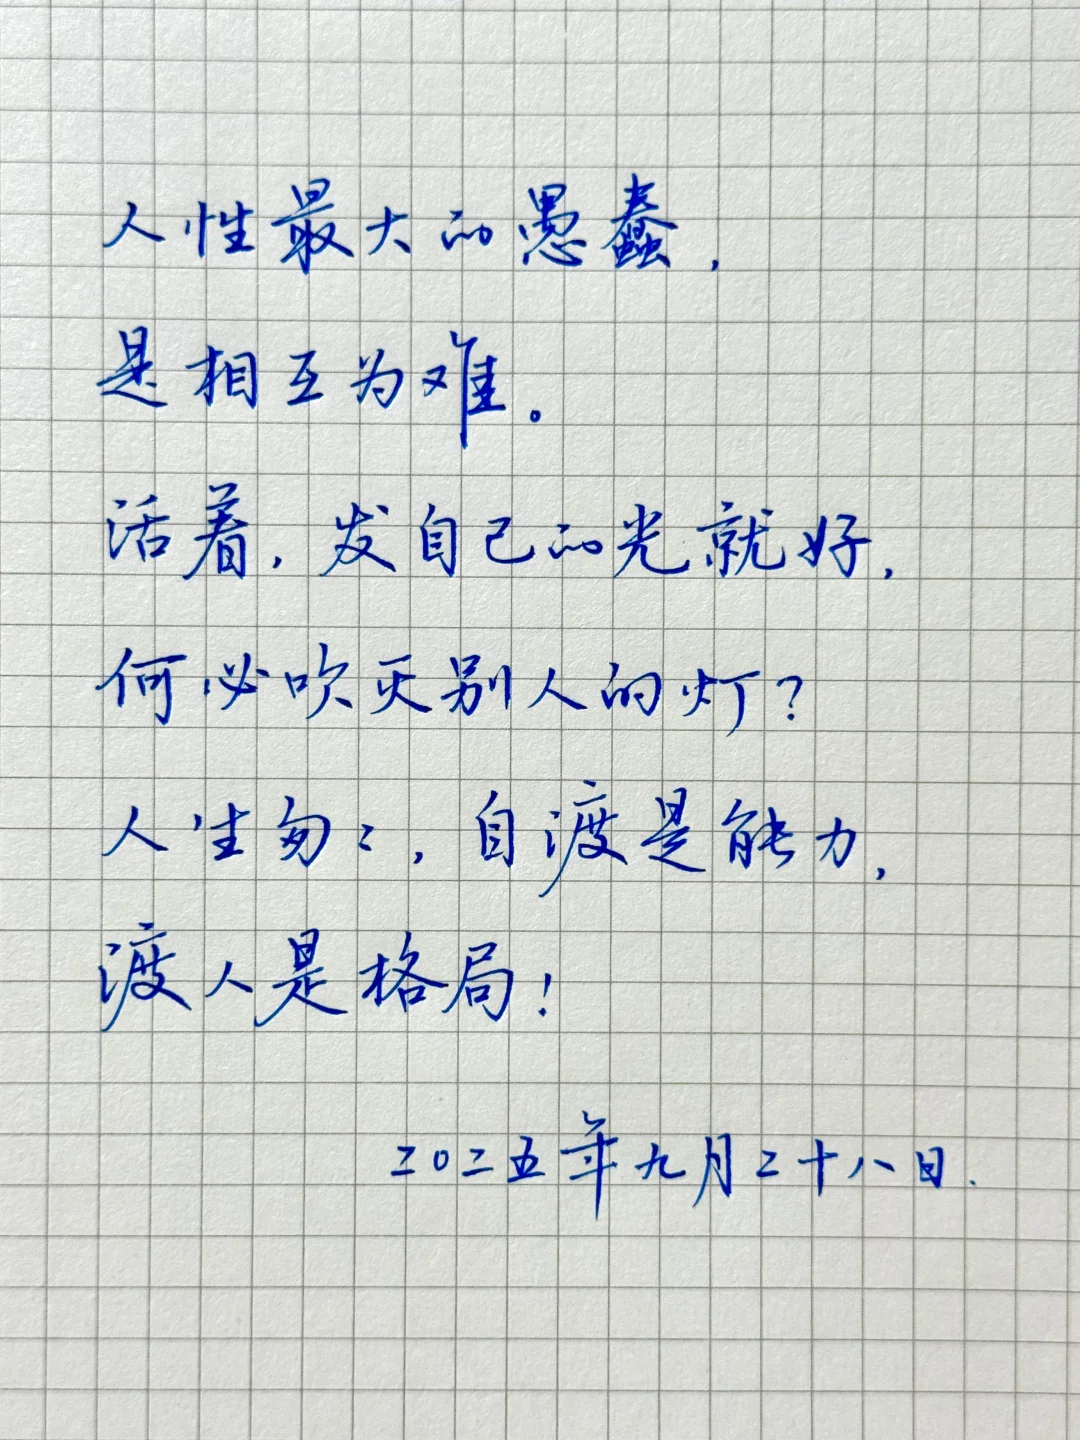 人性最大的愚蠢,
是相互为难。
活着,发自己的光就好,
何必吹灭别人的灯?
人生匆々,自渡是能力,
渡人是格局!
二〇二五年九月二十八日.